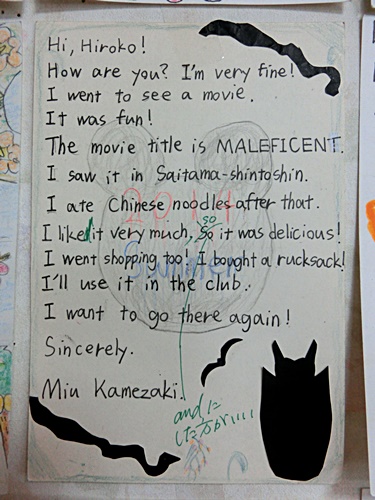 Hi, Hiroko!
How are you? I'm very fine!
I went to see a movie.
It was fun!
The movie title is MALEFICENT.
I saw it in Saitama-shintoshin.
2014
I ate Chinese noodles after that.
so
I like it very much, So it was delicious!
Summer
I went shopping too! I bought a rucksack!
I'll use it in the club.
I want to go there again!
Sincerely.
Miu Kamezaki.
andに
した方が